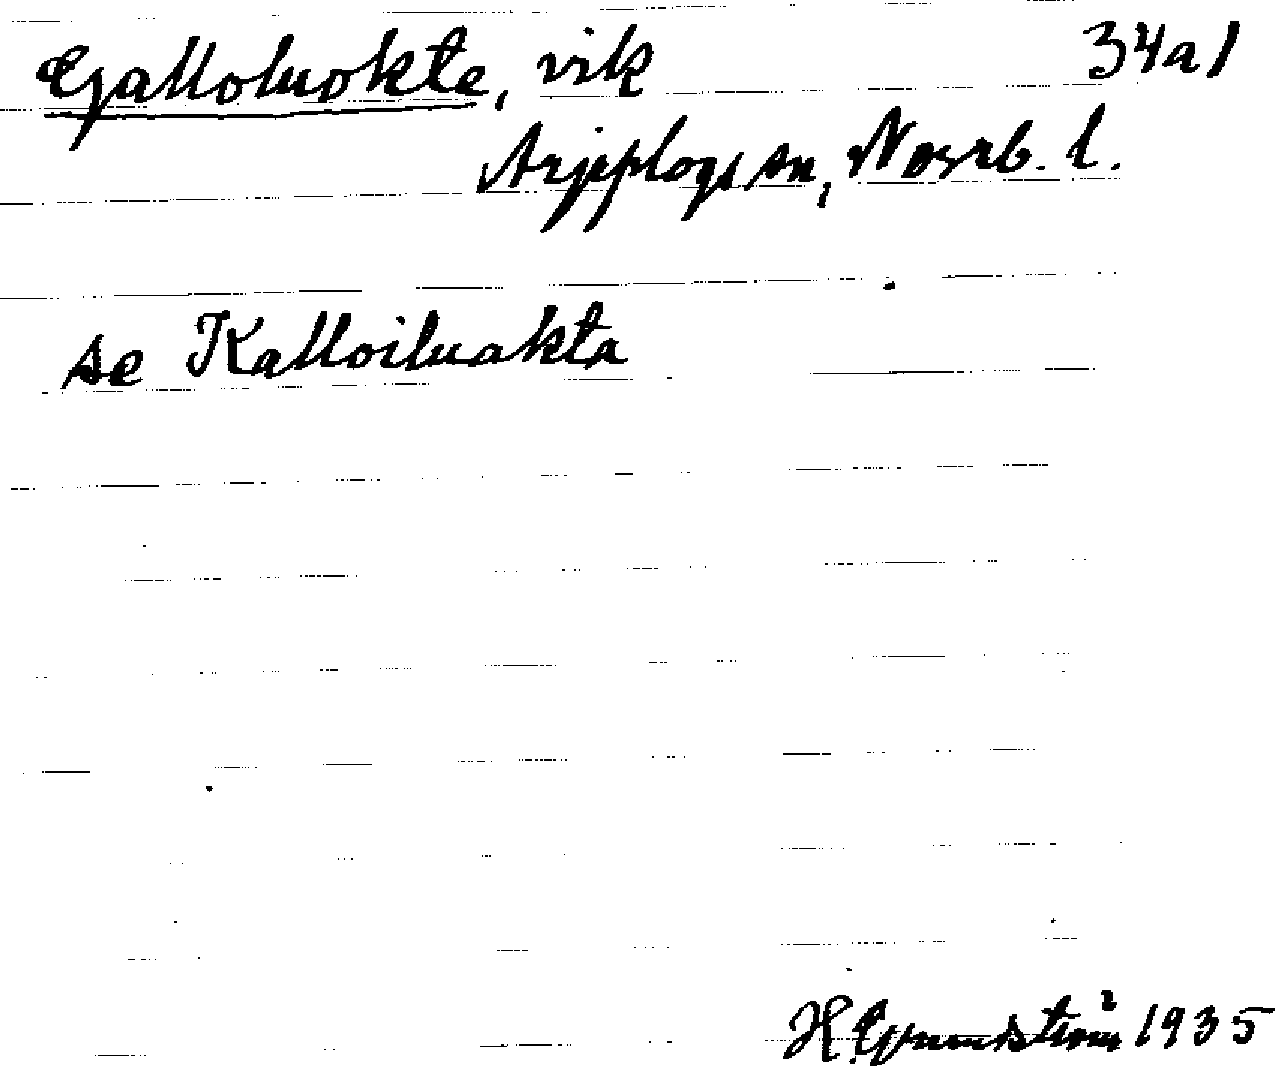 Galloluokte, vik 34a1
Arjeplogs sn, Norrb. l.
se Kalloiluakta
H. Grundström 1935